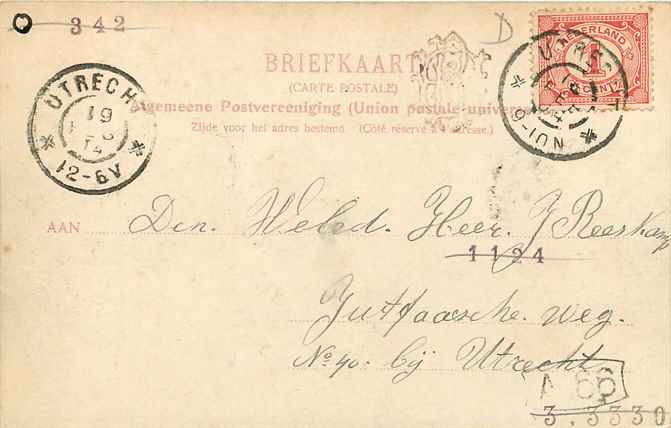 342
D
BRIEFKAART
(CARTE POSTALE)
Algemeene Postvereeniging (Union postale universelle)
Zijde voor het adres bestemd. (Côté réservé à l'adresse.)
NEDERLAND
1
CENT
UTRECHT
9-10N
UTRECHT
19
12-6V
AAN Den. Weled. Heer. J Reeskamp
1124
Jutfaasche. weg.
No 40. bij Utrecht
A 66
3.3330